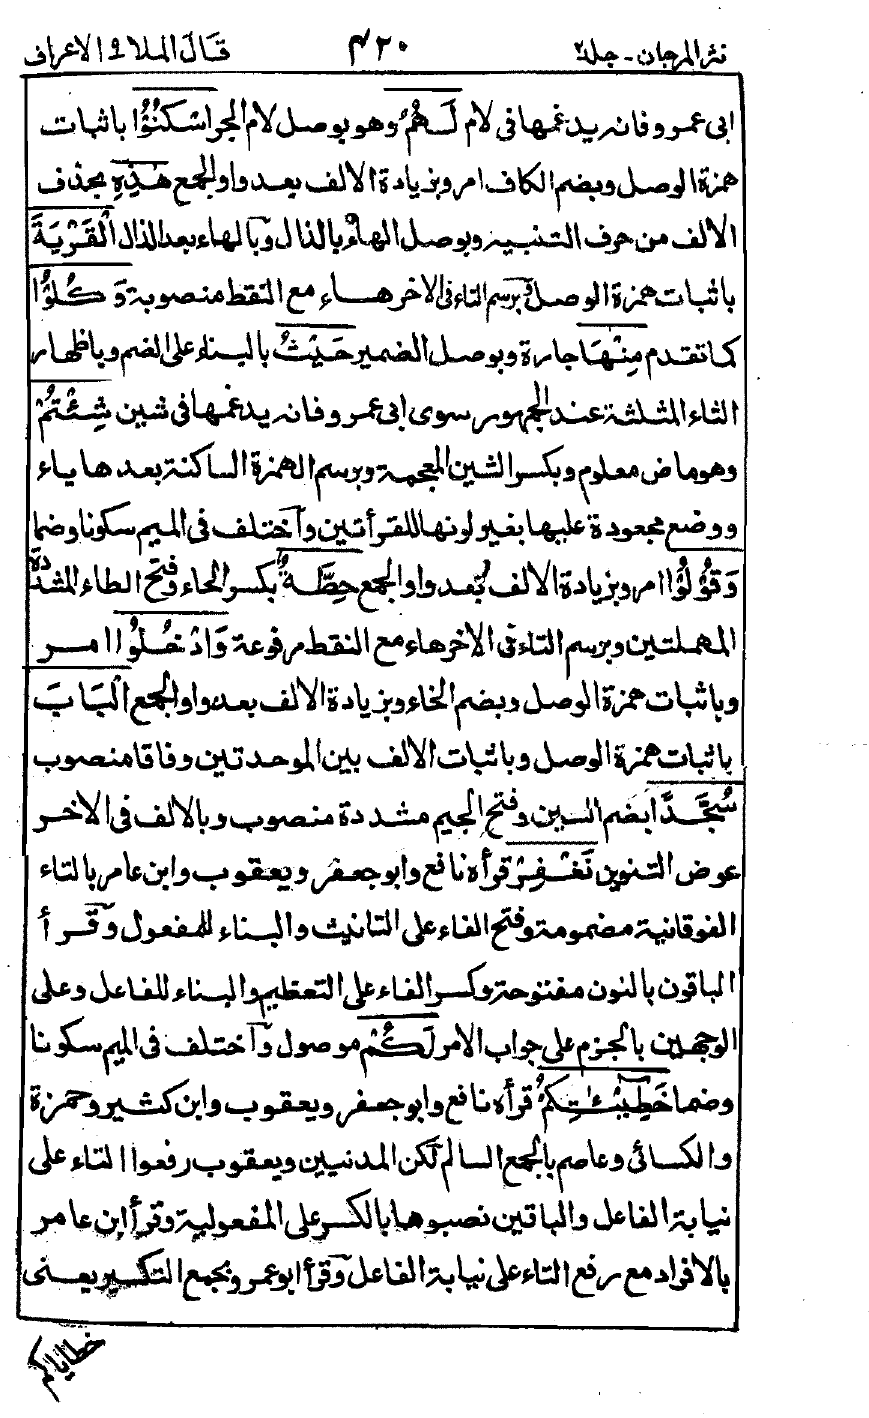 نثر المرجان - جلد ٢ ٤٢٠ قال الملا ٩ الاعراف
ابى عمرو فانه يدغمها فى لام لَهُمُ وهو بوصل لام الجر اسْكُنُوْا باثبات
همزة الوصل وبضم الكاف امر وبزيادة الالف بعد واو الجمع هٰذِهِ بحذف
الالف من حرف التنبيه وبوصل الهاء بالذال وبالهاء بعد الذال الْقَرْيَةَ
باثبات همزة الوصل وبرسم التاء فى الاخر هاء مع النقط منصوبة وَكُلُوْا
كما تقدم مِنْهَا جارة وبوصل الضمير حَيْثُ بالبناء على الضم وباظهار
الثاء المثلثة عند الجمهور سوى ابى عمرو فانه يدغمها فى شين شِئْتُمْ
وهو ماض معلوم وبكسر الشين المعجمة وبرسم الهمزة الساكنة بعدها ياء
ووضع مجعودة عليها بغير لونها للقرأتين واختلف فى الميم سكونا وضما
وَقُوْلُوْا امر وبزيادة الالف بعد واو الجمع حِطَّةٌ بكسر الحاء وفتح الطاء المشددة
المهملتين وبرسم التاء فى الاخر هاء مع النقط مرفوعة وَادْخُلُوا امر
وباثبات همزة الوصل وبضم الخاء وبزيادة الالف بعد واو الجمع الْبَابَ
باثبات همزة الوصل وباثبات الالف بين الموحدتين وفاقا منصوب
سُجَّدًا بضم السين وفتح الجيم مشددة منصوب وبالالف فى الاخر
عوض التنوين نَغْفِرْ قرأه نافع وابو جعفر ويعقوب وابن عامر بالتاء
الفوقانية مضمومة وفتح الفاء على التانيث والبناء للمفعول وقرأ
الباقون بالنون مفتوحة وكسر الفاء على التعظيم والبناء للفاعل وعلى
الوجهين بالجزم على جواب الامر لَكُمْ موصول واختلف فى الميم سكونا
وضما خَطِيْئٰتِكُمْ قرأه نافع وابو جعفر ويعقوب وابن كثير وحمزة
والكسائى وعاصم بالجمع السالم لكن المدنيين ويعقوب رفعوا التاء على
نيابة الفاعل والباقين نصبوها بالكسر على المفعولية وقرأ ابن عامر
بالافراد مع رفع التاء على نيابة الفاعل وقرأ ابو عمرو بجمع التكسير يعنى
خطاياكم